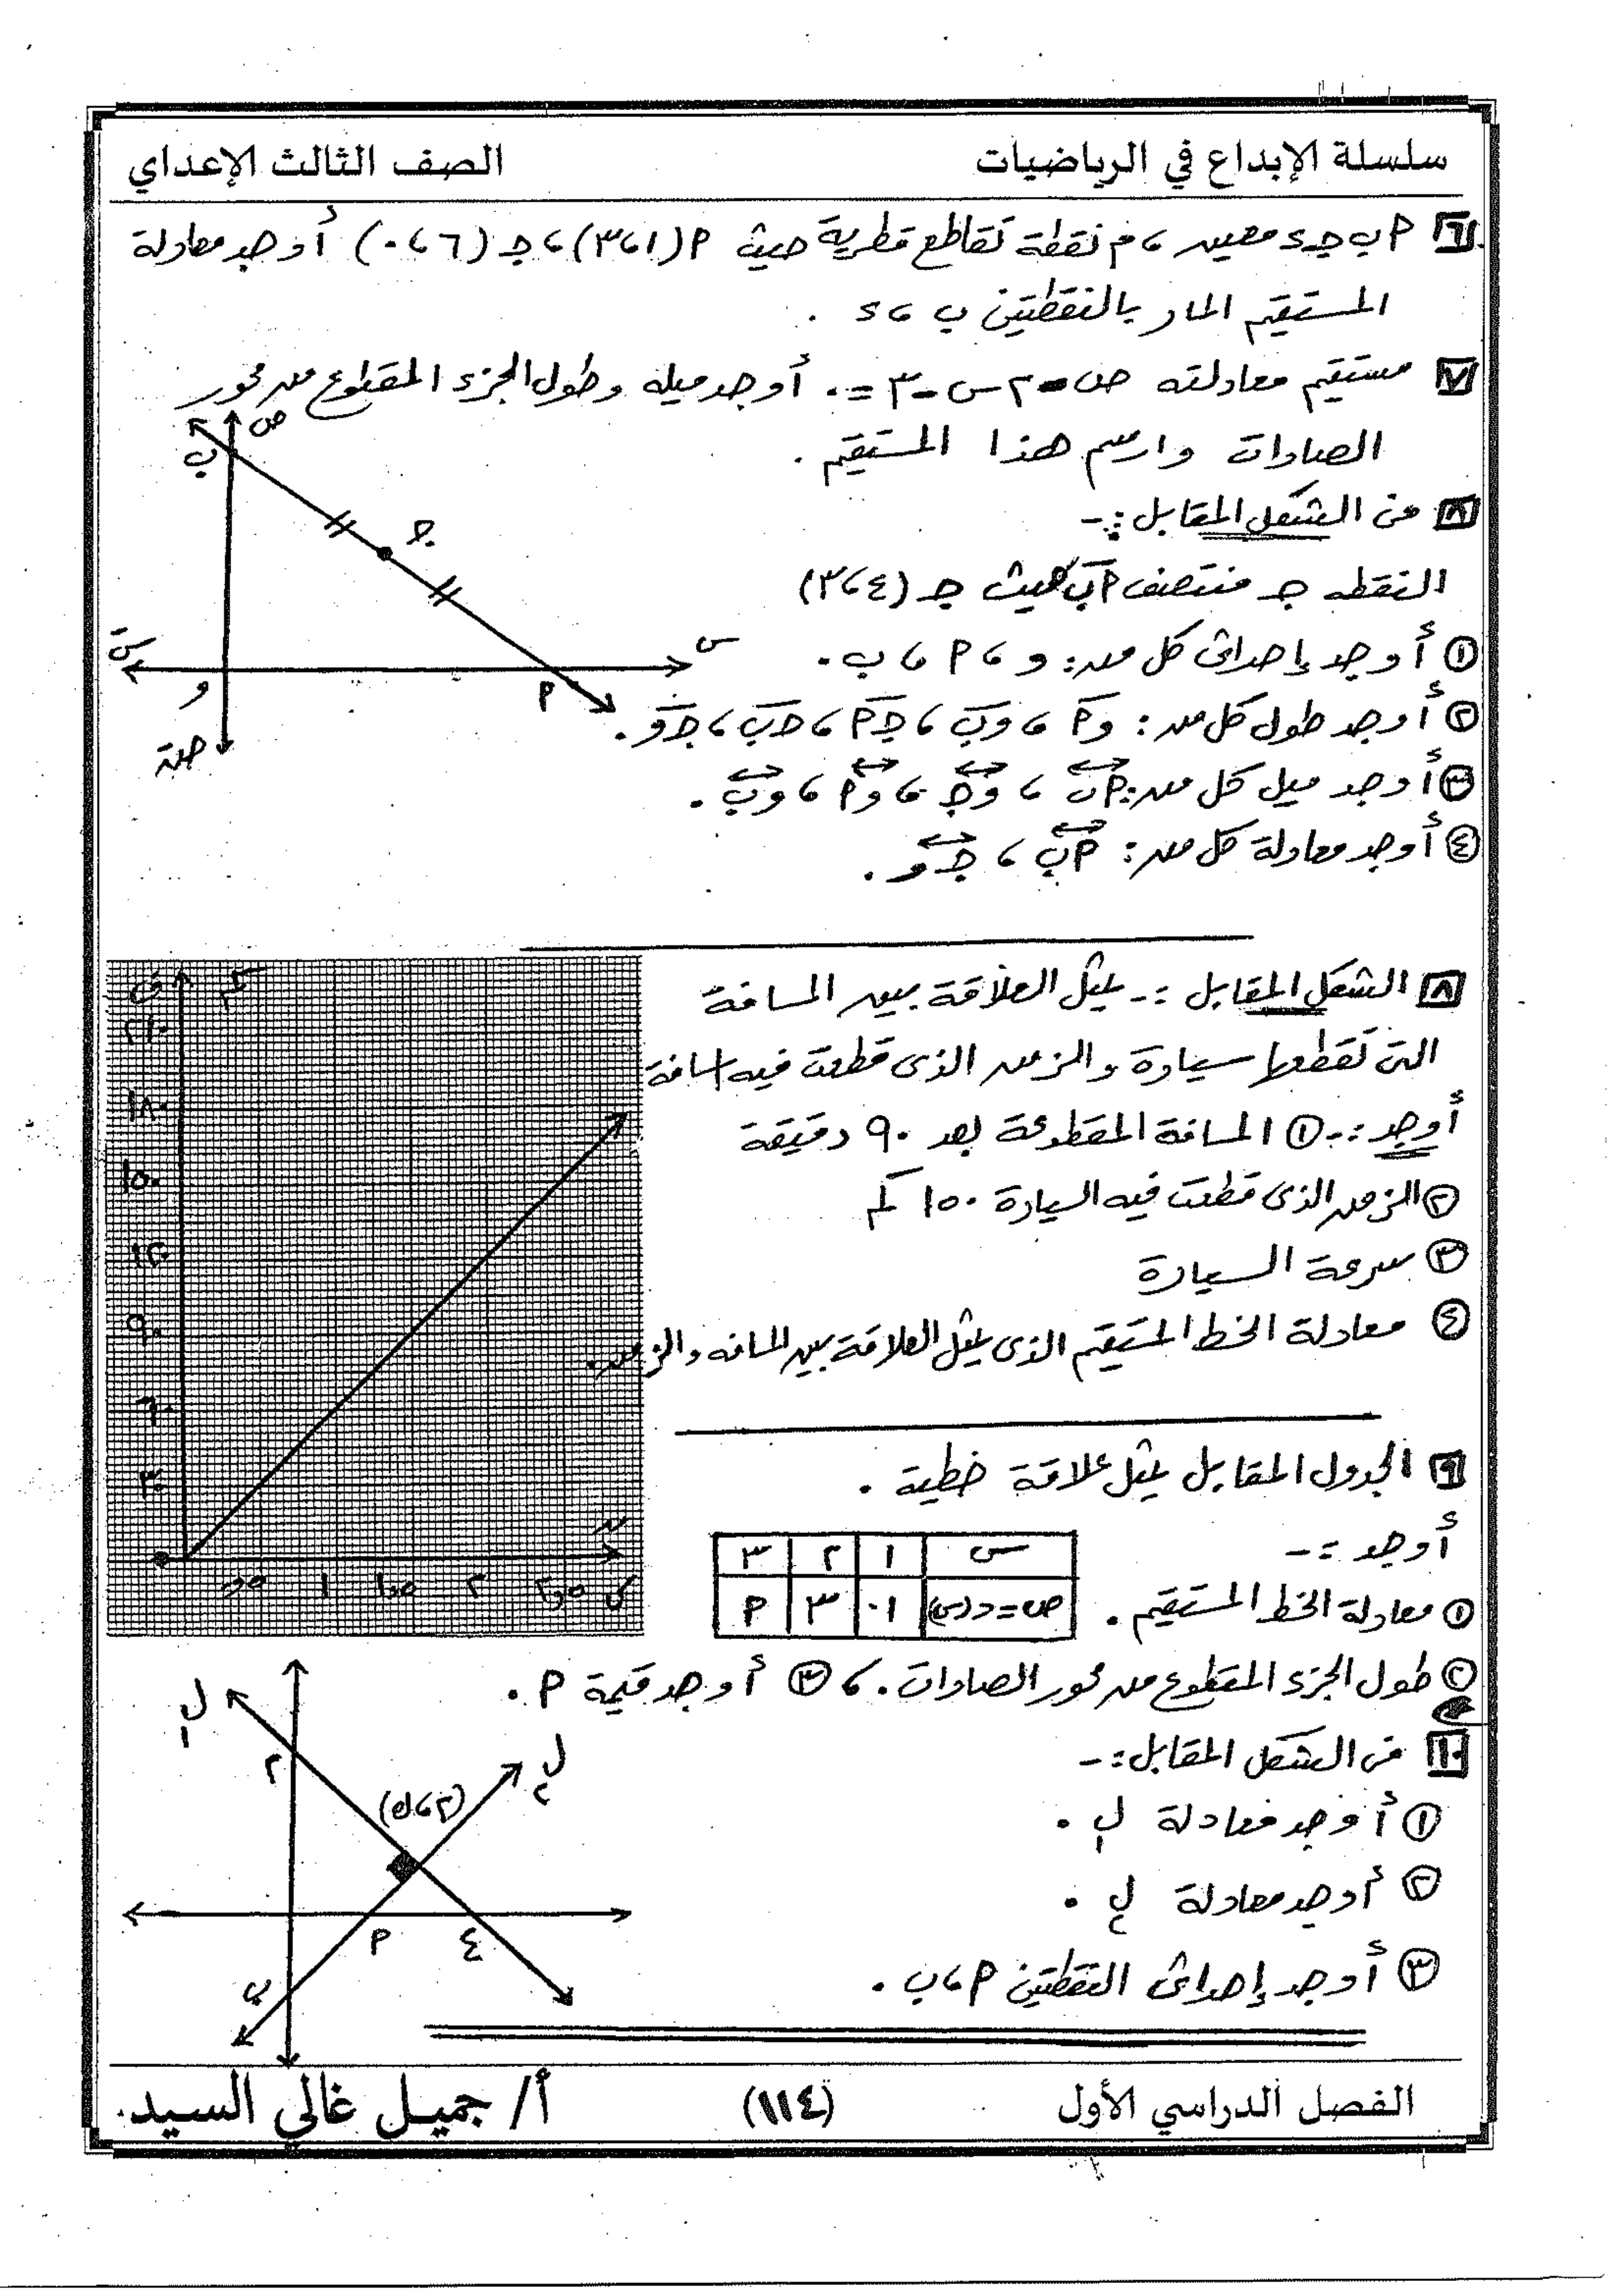 سلسلة الإبداع في الرياضيات
الصف الثالث الإعداي
٦ P ب جـ د معين ، م نقطة تقاطع قطرية حيث P (١ ، ٣) ، جـ (٦ ، ٠) أوجد معادلة
المستقيم المار بالنقطتين ب ، د .
٧ مستقيم معادلته ص - ٢س - ٣ = ٠ أوجد ميله وطول الجزء المقطوع من محور
الصادات وارسم هذا المستقيم .
٨ من الشكل المقابل :-
النقطه جـ منتصف P ب حيث جـ (٤ ، ٣)
١ أوجد إحداثى كل من : و ، P ، ب .
٢ أوجد طول كل من : و P ، و ب ، جـ P ، جـ ب ، جـ و .
٣ أوجد ميل كل من : P ب ، و جـ ، و P ، و ب .
٤ أوجد معادلة كل من : P ب ، جـ و .
ص
ب
جـ
س
سَ
و
P
صَ
٨ الشكل المقابل :- يمثل العلاقة بين المسافة
التى تقطعها سيارة والزمن الذى قطعت فيه المسافة
أوجد :- ١ المسافة المقطوعة بعد ٩٠ دقيقة
٢ الزمن الذى قطعت فيه السيارة ١٥٠ كم
٣ سرعة السيارة
٤ معادلة الخط المستقيم الذى يمثل العلاقة بين المسافه والزمن .
ف
كم
٢١٠
١٨٠
١٥٠
١٢٠
٩٠
٦٠
٣٠
ن
٠,٥ ١ ١,٥ ٢ ٢,٥
٩ الجدول المقابل يمثل علاقة خطية .
أوجد :-
س ١ ٢ ٣
ص = د(س) ١٠ ٣ P
١ معادلة الخط المستقيم .
٢ طول الجزء المقطوع من محور الصادات . ، ٣ أوجد قيمة P .
١٠ من الشكل المقابل :-
١ أوجد معادلة ل١ .
٢ أوجد معادلة ل٢ .
٣ أوجد إحداثى النقطتين P ، ب .
ل١
٢
ل٢
(٢ ، ك)
P
٤
ب
الفصل الدراسي الأول
(١١٤)
أ/ جميل غالي السيد.